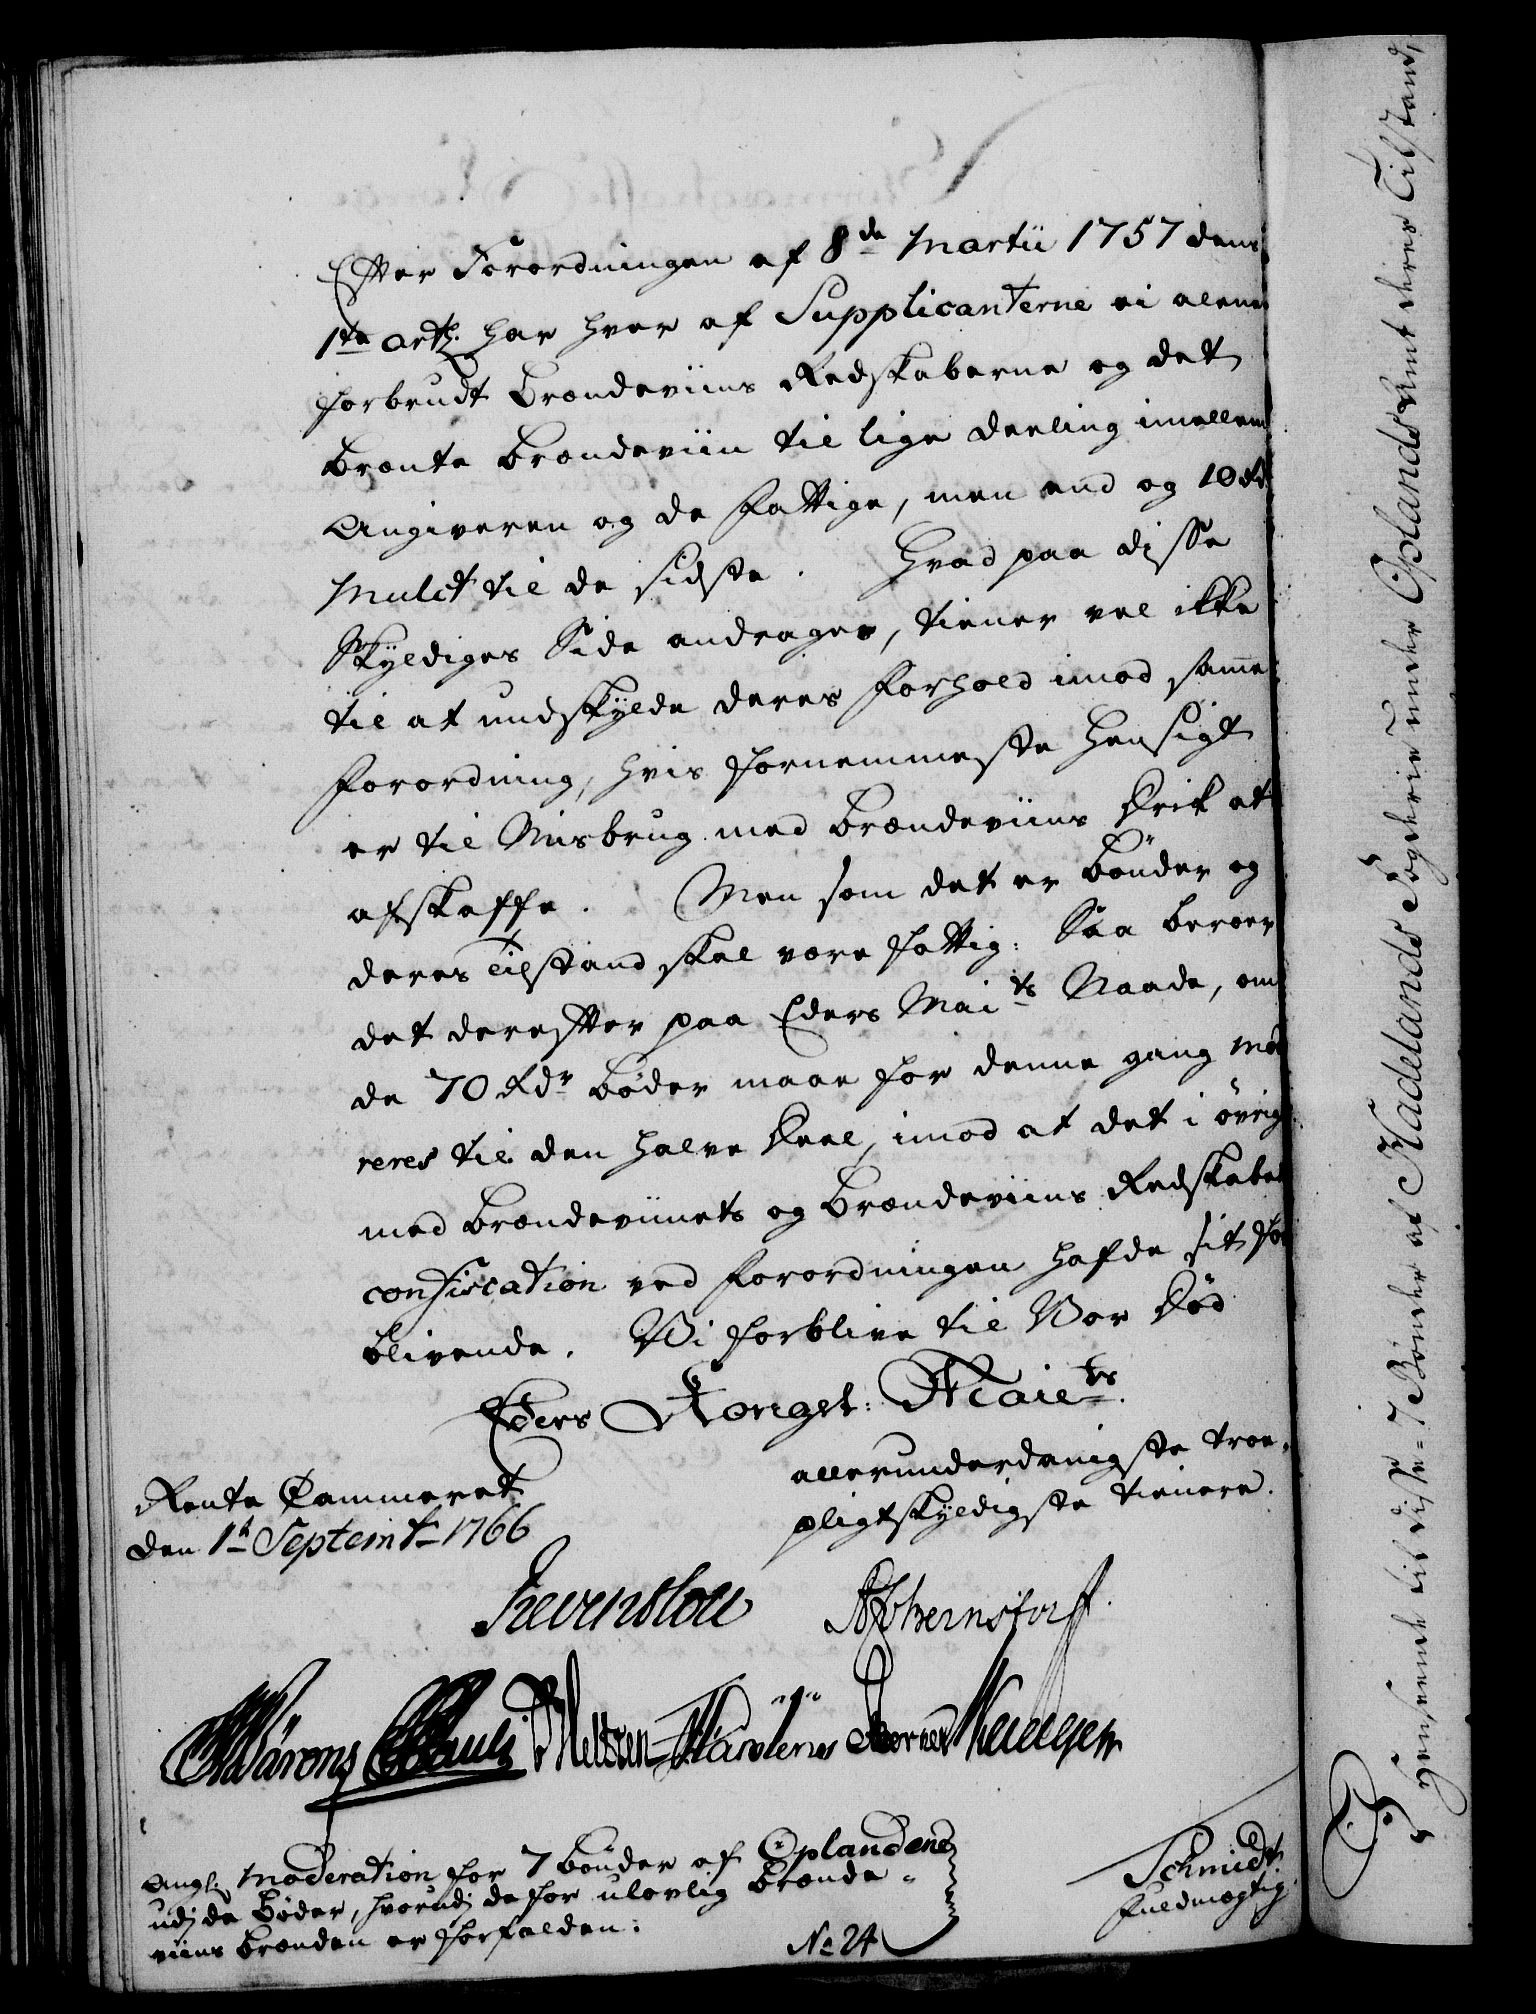 Efter Forordningen af 8de Martii 1757 dens
1te artl. har hver af Supplicanterne ei alene
forbrudt Brændeviins Redskaberne og det
brænte Brændeviin til lige deeling imellem
Angiveren og de Fattige, men end og 10 Rd
Mulct til de sidste. Hvad paa disse
Skyldiges Side andrages, tiener vel ikke
til at undskylde deres Forhold imod samme
Forordning, hvis fornemmeste Hensigt
er til Misbrug med Brændeviins Drik at
afskaffe. Men som det er Bønder og
deres Tilstand skal være fattig: Saa beroer
det derefter paa Eders Maits Naade, om
de 70 Rdr Bøder maae for denne gang mode
reres til den halve Deel, imod at det i øvrigt
med Brændeviinets og Brændeviins Redskabets
confiscation ved Forordningen hafde sit for
blivende. Vi forblive til Vor Død
Eders Kongel: Maiets
allerunderdanigste troe
pligtskyldigste tienere.
Rente Cammeret
den 1te Septembr 1766
Reventlou AGBernstorff
Wärens Pauli Meltzen Skanderup
angl. Moderation for 7 Bønder af Oplandene
udj de Bøder, hvorudj de for ulovlig Brænde-
viins brænden er forfalden:
No 24
Schmidt
Fuldmægtig
J Henseende til disse 7 Bønder af Hadelands Fogderie under Oplands Amt deres Tilstand,